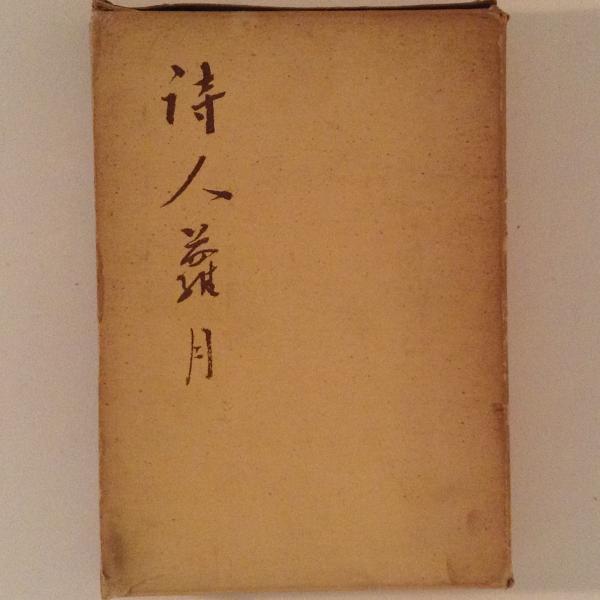 詩人蘿月